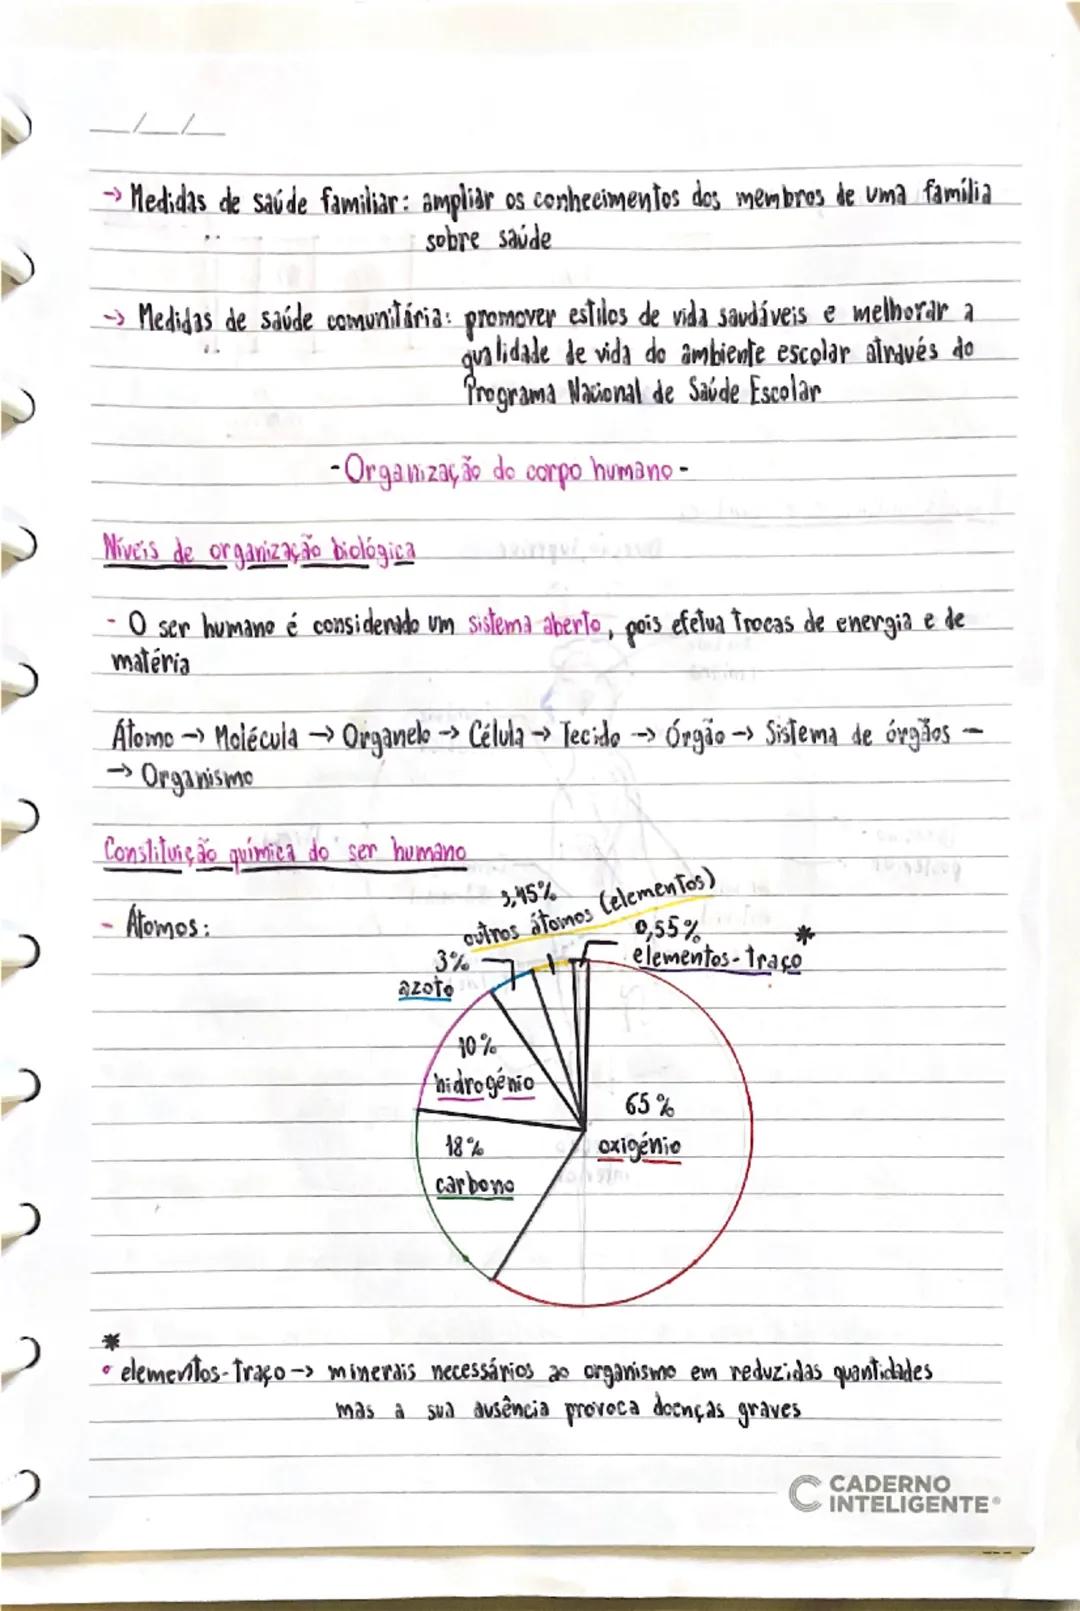 __/__/__
→ Medidas de saúde familiar: ampliar os conhecimentos dos membros de uma família
sobre saúde
→ Medidas de saúde comunitária: promover estilos de vida saudáveis e melhorar a
qualidade de vida do ambiente escolar através do
Programa Nacional de Saúde Escolar
- Organização do corpo humano -
Níveis de organização biológica
- O ser humano é considerado um sistema aberto, pois efetua trocas de energia e de
matéria
Átomo → Molécula → Organelo → Célula → Tecido → Órgão → Sistema de órgãos —
→ Organismo
Constituição química do ser humano
- Átomos:
3,45%
outros átomos (elementos)
0,55% *
elementos-traço
3%
azoto
10%
hidrogénio
65%
oxigénio
18%
carbono
*
• elementos-traço → minerais necessários ao organismo em reduzidas quantidades
mas a sua ausência provoca doenças graves
CADERNO
INTELIGENTE®